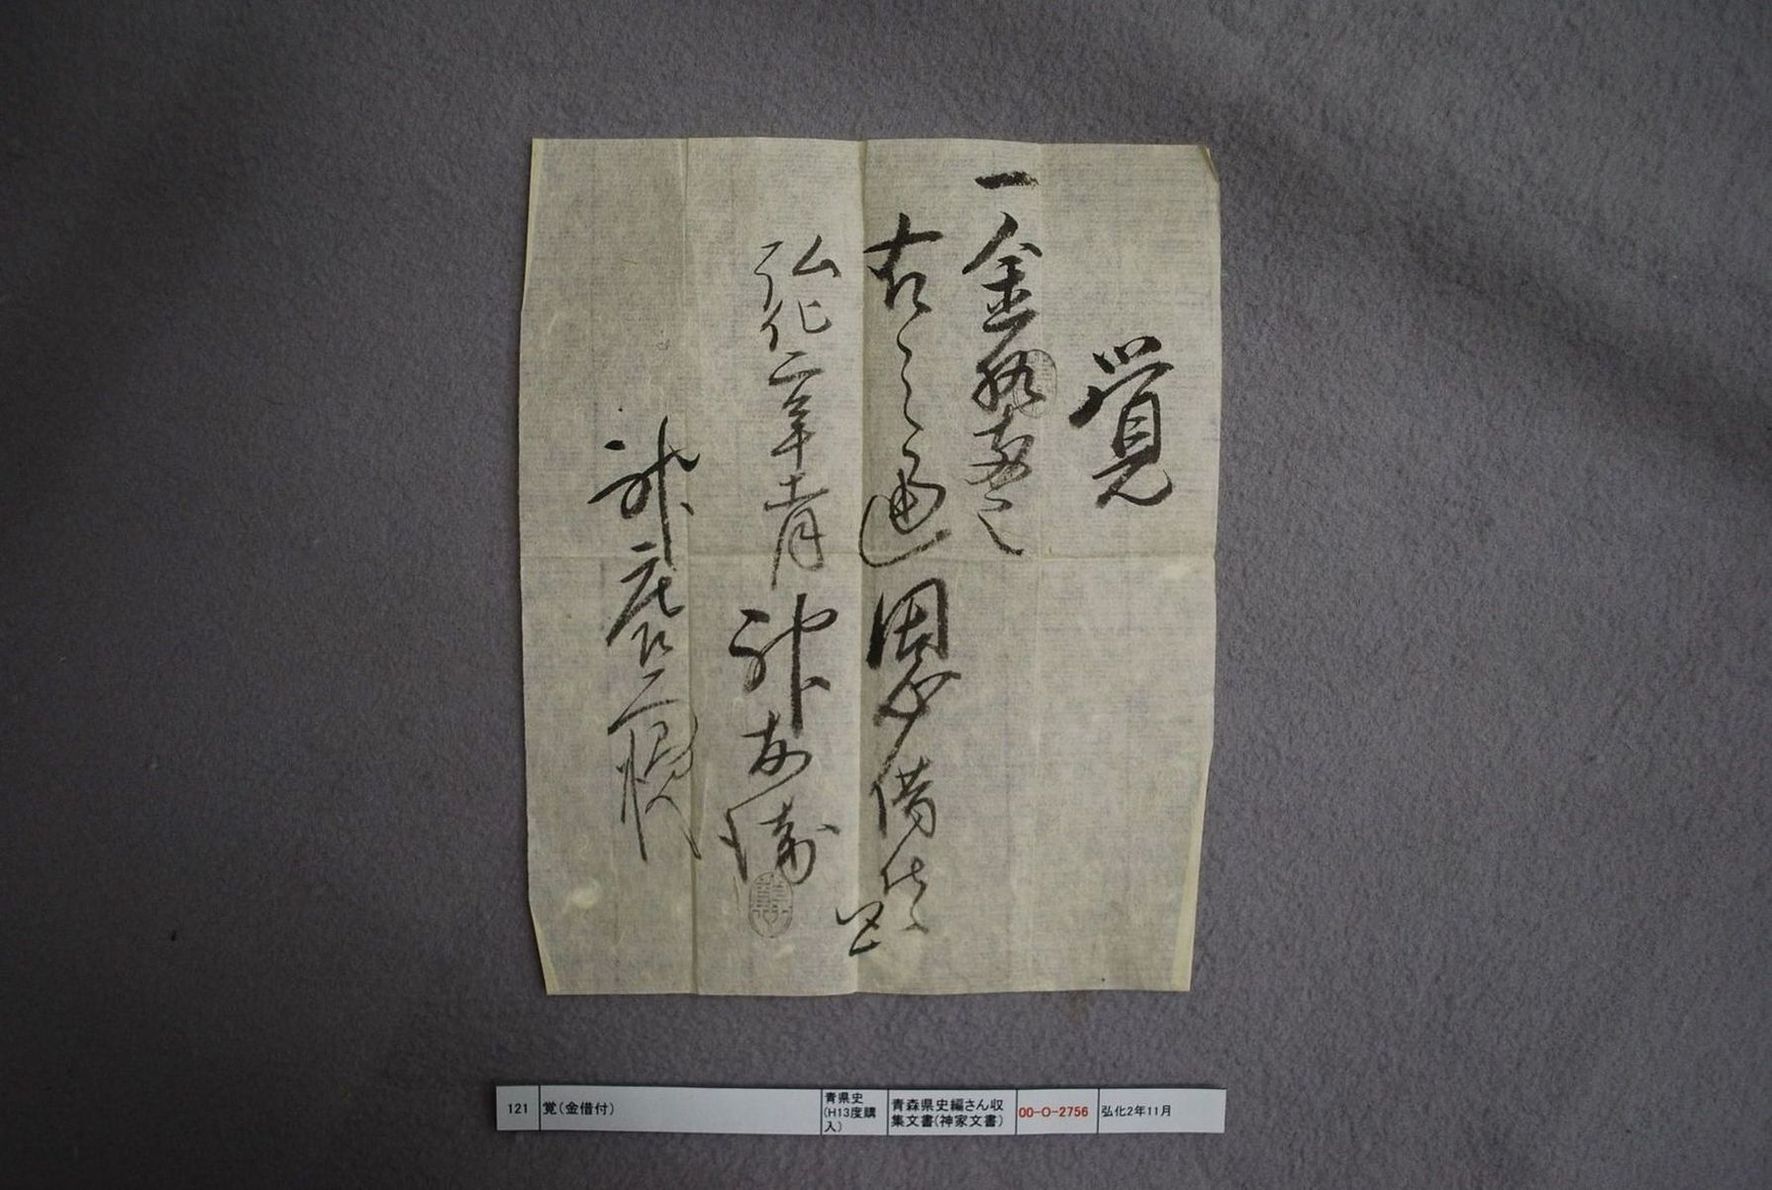 覚
一金拾両也
右之通恩借仕候
以上
弘化二年十一月 神友衛
神庄仁二様
121 覚(金借付) 青県史(H13度購入) 青森県史編さん収集文書(神家文書) 00-O-2756 弘化2年11月